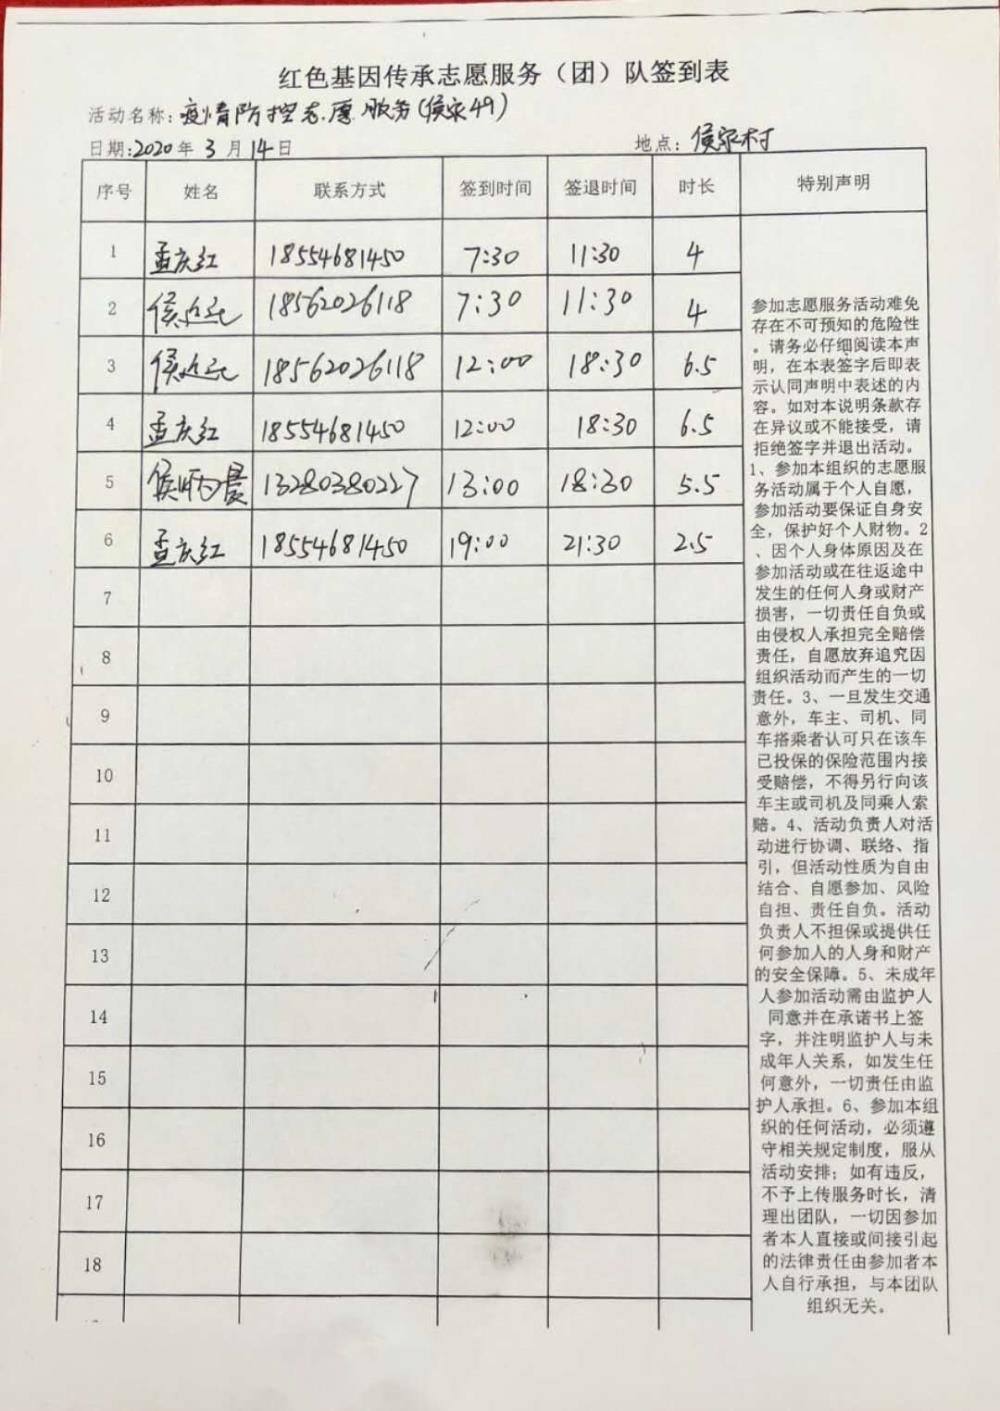 红色基因传承志愿服务（团）队签到表
活动名称：疫情防控志愿服务(侯家49)
日期:2020年3月14日 地点：侯家村
序号 姓名 联系方式 签到时间 签退时间 时长 特别声明
1 孟庆红 18554681450 7:30 11:30 4
2 侯 18562026118 7:30 11:30 4
3 侯 18562026118 12:00 18:30 6.5
4 孟庆红 18554681450 12:00 18:30 6.5
5 侯 13280380227 13:00 18:30 5.5
6 孟庆红 18554681450 19:00 21:30 2.5
7
8
9
10
11
12
13
14
15
16
17
18
参加志愿服务活动难免
存在不可预知的危险性
。请务必仔细阅读本声
明，在本表签字后即表
示认同声明中表述的内
容。如对本说明条款存
在异议或不能接受，请
拒绝签字并退出活动。
1、参加本组织的志愿服
务活动属于个人自愿，
参加活动要保证自身安
全，保护好个人财物。2
、因个人身体原因及在
参加活动或在往返途中
发生的任何人身或财产
损害，一切责任自负或
由侵权人承担完全赔偿
责任，自愿放弃追究因
组织活动而产生的一切
责任。3、一旦发生交通
意外，车主、司机、同
车搭乘者认可只在该车
已投保的保险范围内接
受赔偿，不得另行向该
车主或司机及同乘人索
赔。4、活动负责人对活
动进行协调、联络、指
引，但活动性质为自由
结合、自愿参加、风险
自担、责任自负。活动
负责人不担保或提供任
何参加人的人身和财产
的安全保障。5、未成年
人参加活动需由监护人
同意并在承诺书上签
字，并注明监护人与未
成年人关系，如发生任
何意外，一切责任由监
护人承担。6、参加本组
织的任何活动，必须遵
守相关规定制度，服从
活动安排；如有违反，
不予上传服务时长，清
理出团队，一切因参加
者本人直接或间接引起
的法律责任由参加者本
人自行承担，与本团队
组织无关。